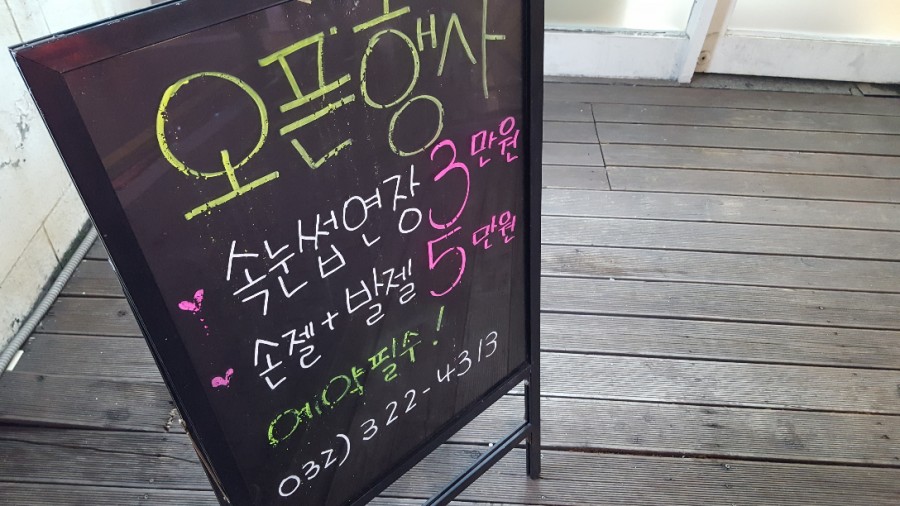 오픈행사
속눈썹연장 3만원
손젤+발젤 5만원
예약필수!
032) 322-4313